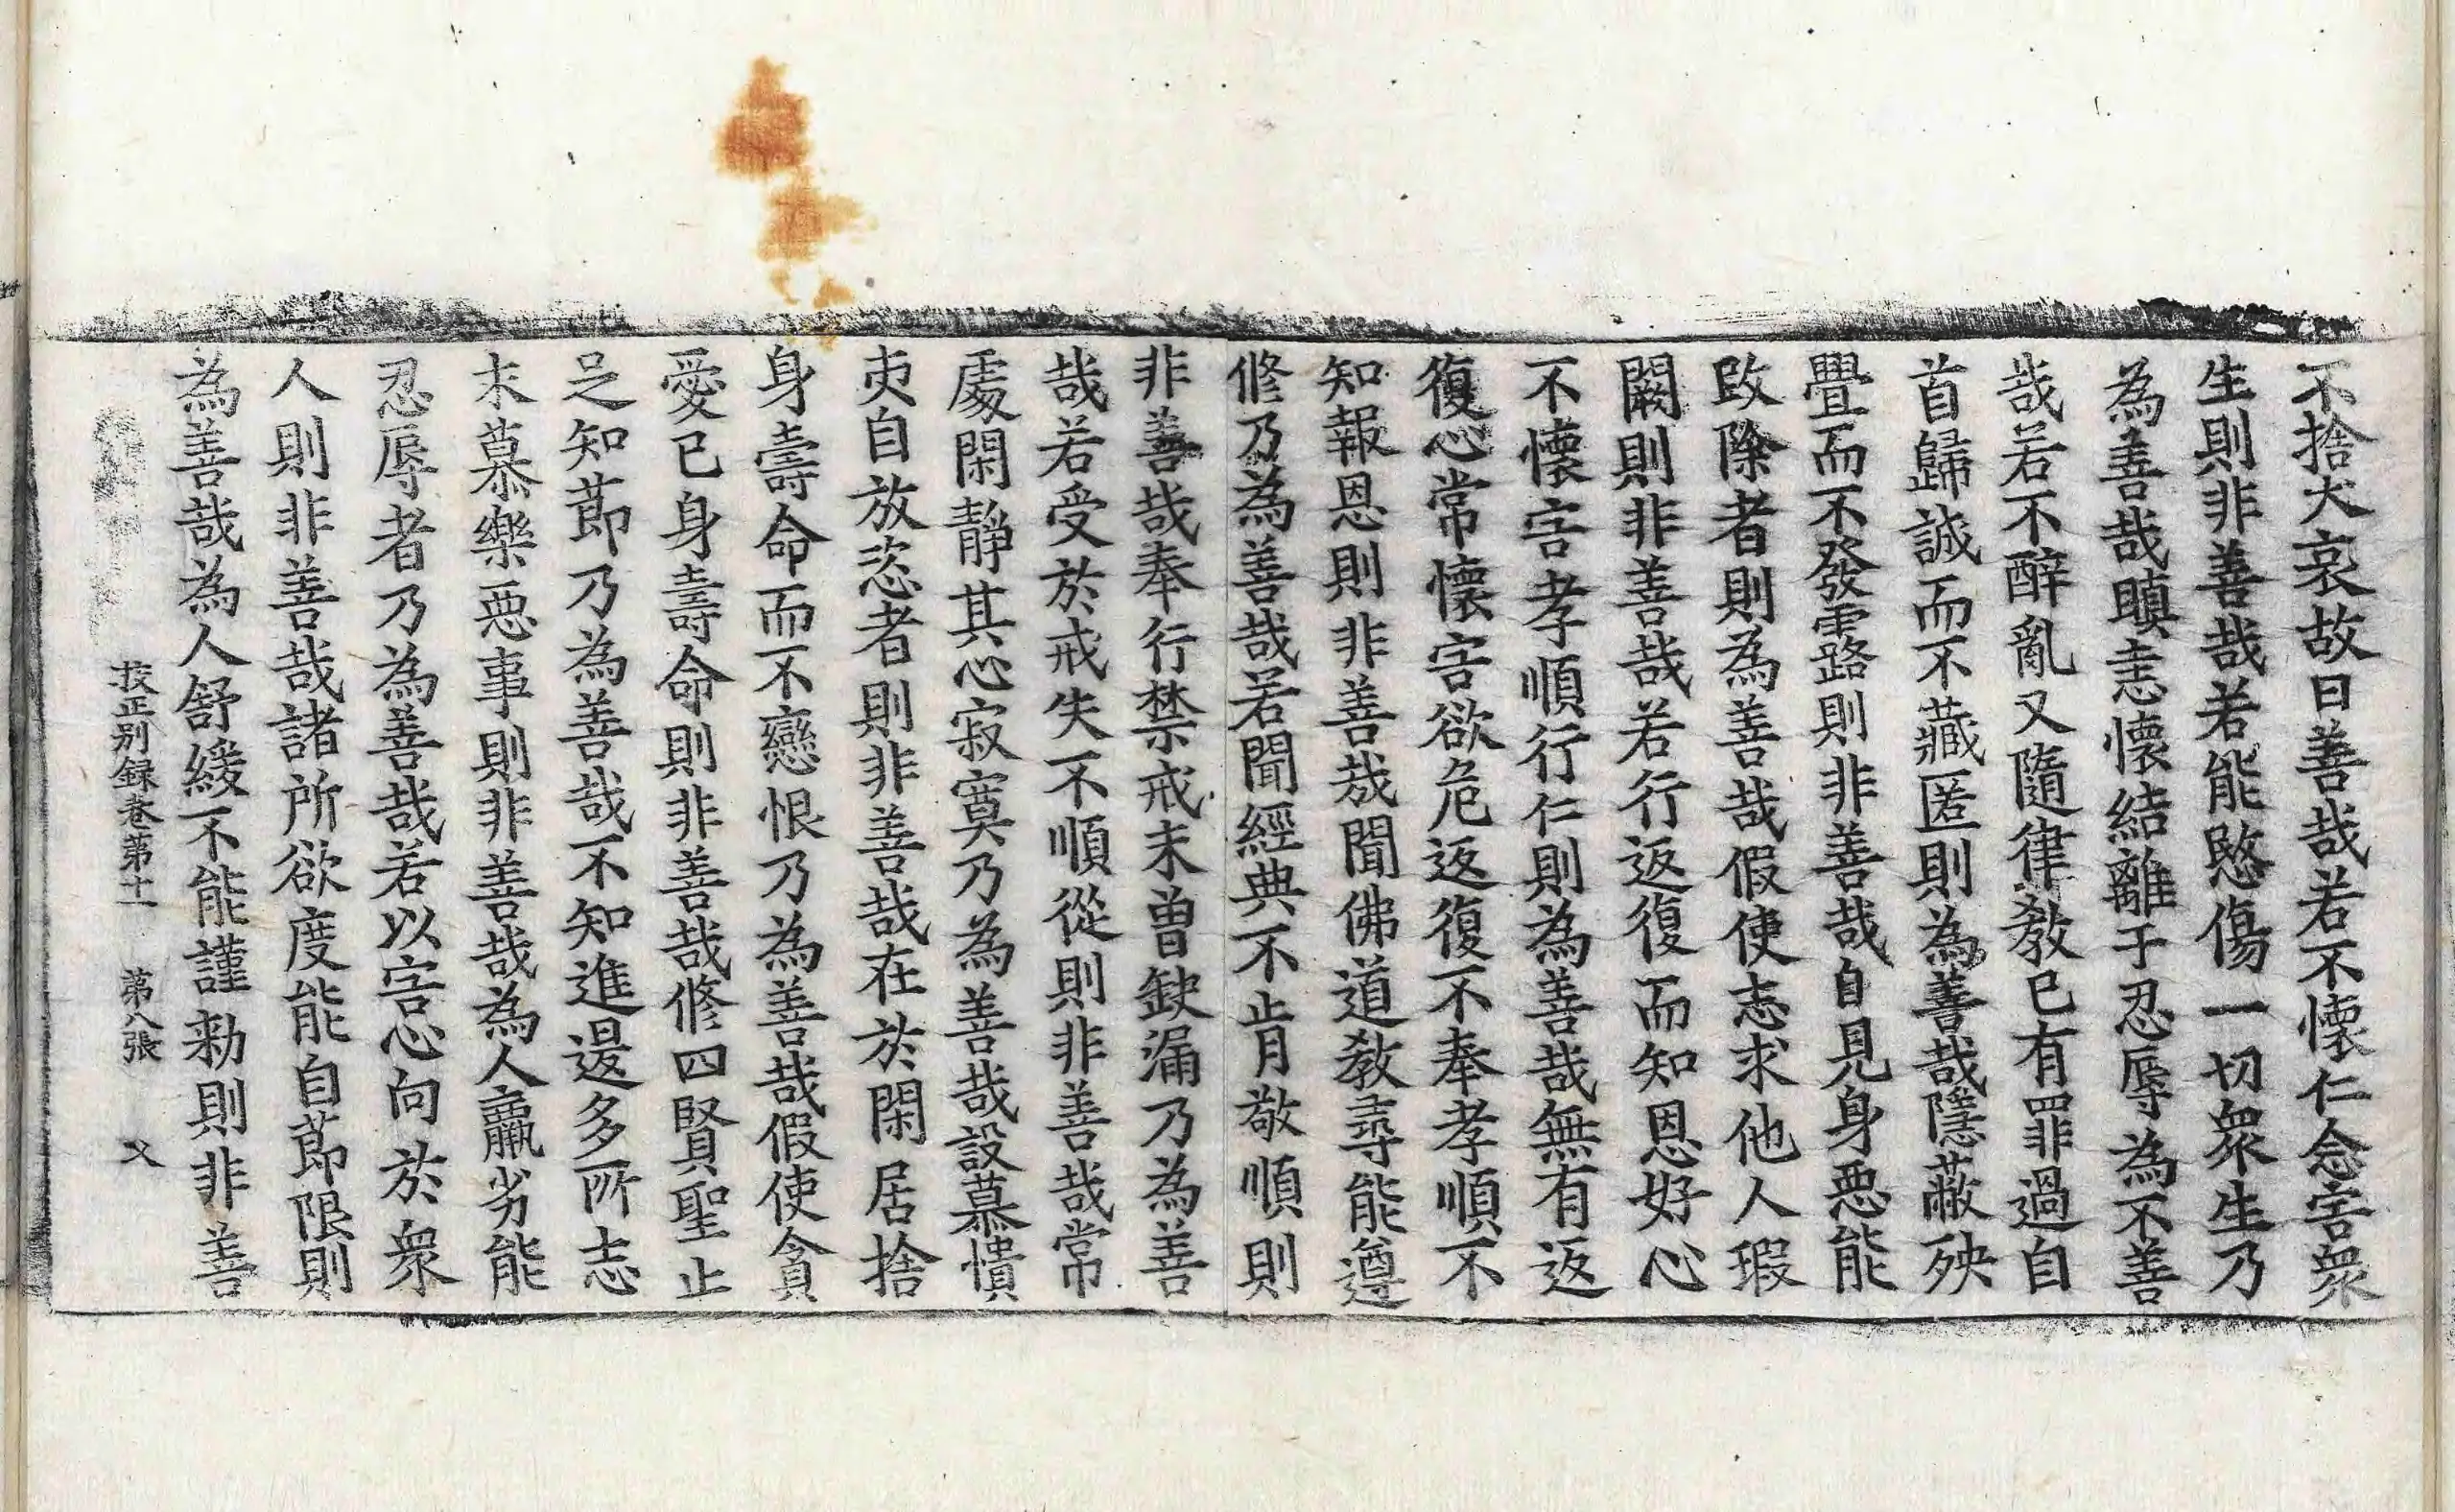 不捨大哀故曰善哉若不懷仁念害衆
生則非善哉若能愍傷一切衆生乃
為善哉瞋恚懷結離于忍辱為不善
哉若不醉亂又隨律敎已有罪過自
首歸誠而不藏匿則為善哉隱蔽殃
舋而不發露則非善哉自見身惡能
改除者則為善哉假使志求他人瑕
闕則非善哉若行返復而知恩好心
不懷害孝順行仁則為善哉無有返
復心常懷害欲危返復不奉孝順不
知報恩則非善哉聞佛道敎尋能遵
修乃為善哉若聞經典不肯敬順則
非善哉奉行禁戒未曾缺漏乃為善
哉若受於戒失不順從則非善哉常
處閑靜其心寂寞乃為善哉設慕憒
吏自放恣者則非善哉在於閑居捨
身壽命而不戀恨乃為善哉假使貪
愛已身壽命則非善哉修四賢聖止
足知節乃為善哉不知進退多所志
求慕樂惡事則非善哉為人羸劣能
忍辱者乃為善哉若以害心向於衆
人則非善哉諸所欲度能自節限則
為善哉為人舒緩不能謹勑則非善
挍正别録卷第十一 第八張 㸚